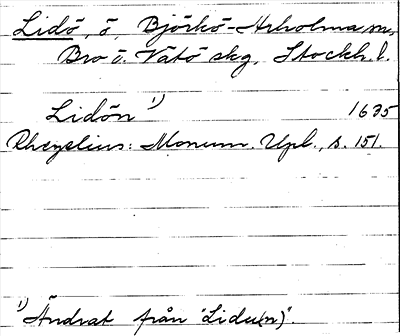 Lidö, ö, Björkö-Arholma sn,
Bro o. Vätö skg, Stockh. l.
Lidön 1) 1635
Rhezelius: Monum. Upl., s. 151.
1) Ändrat från "Lidu(n)".